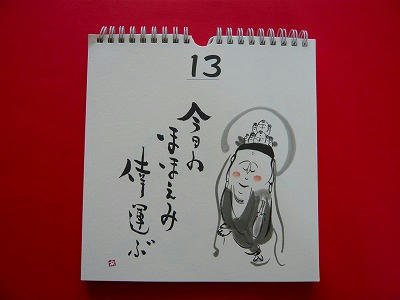 13
今日の
ほほえみ
倖運ぶ